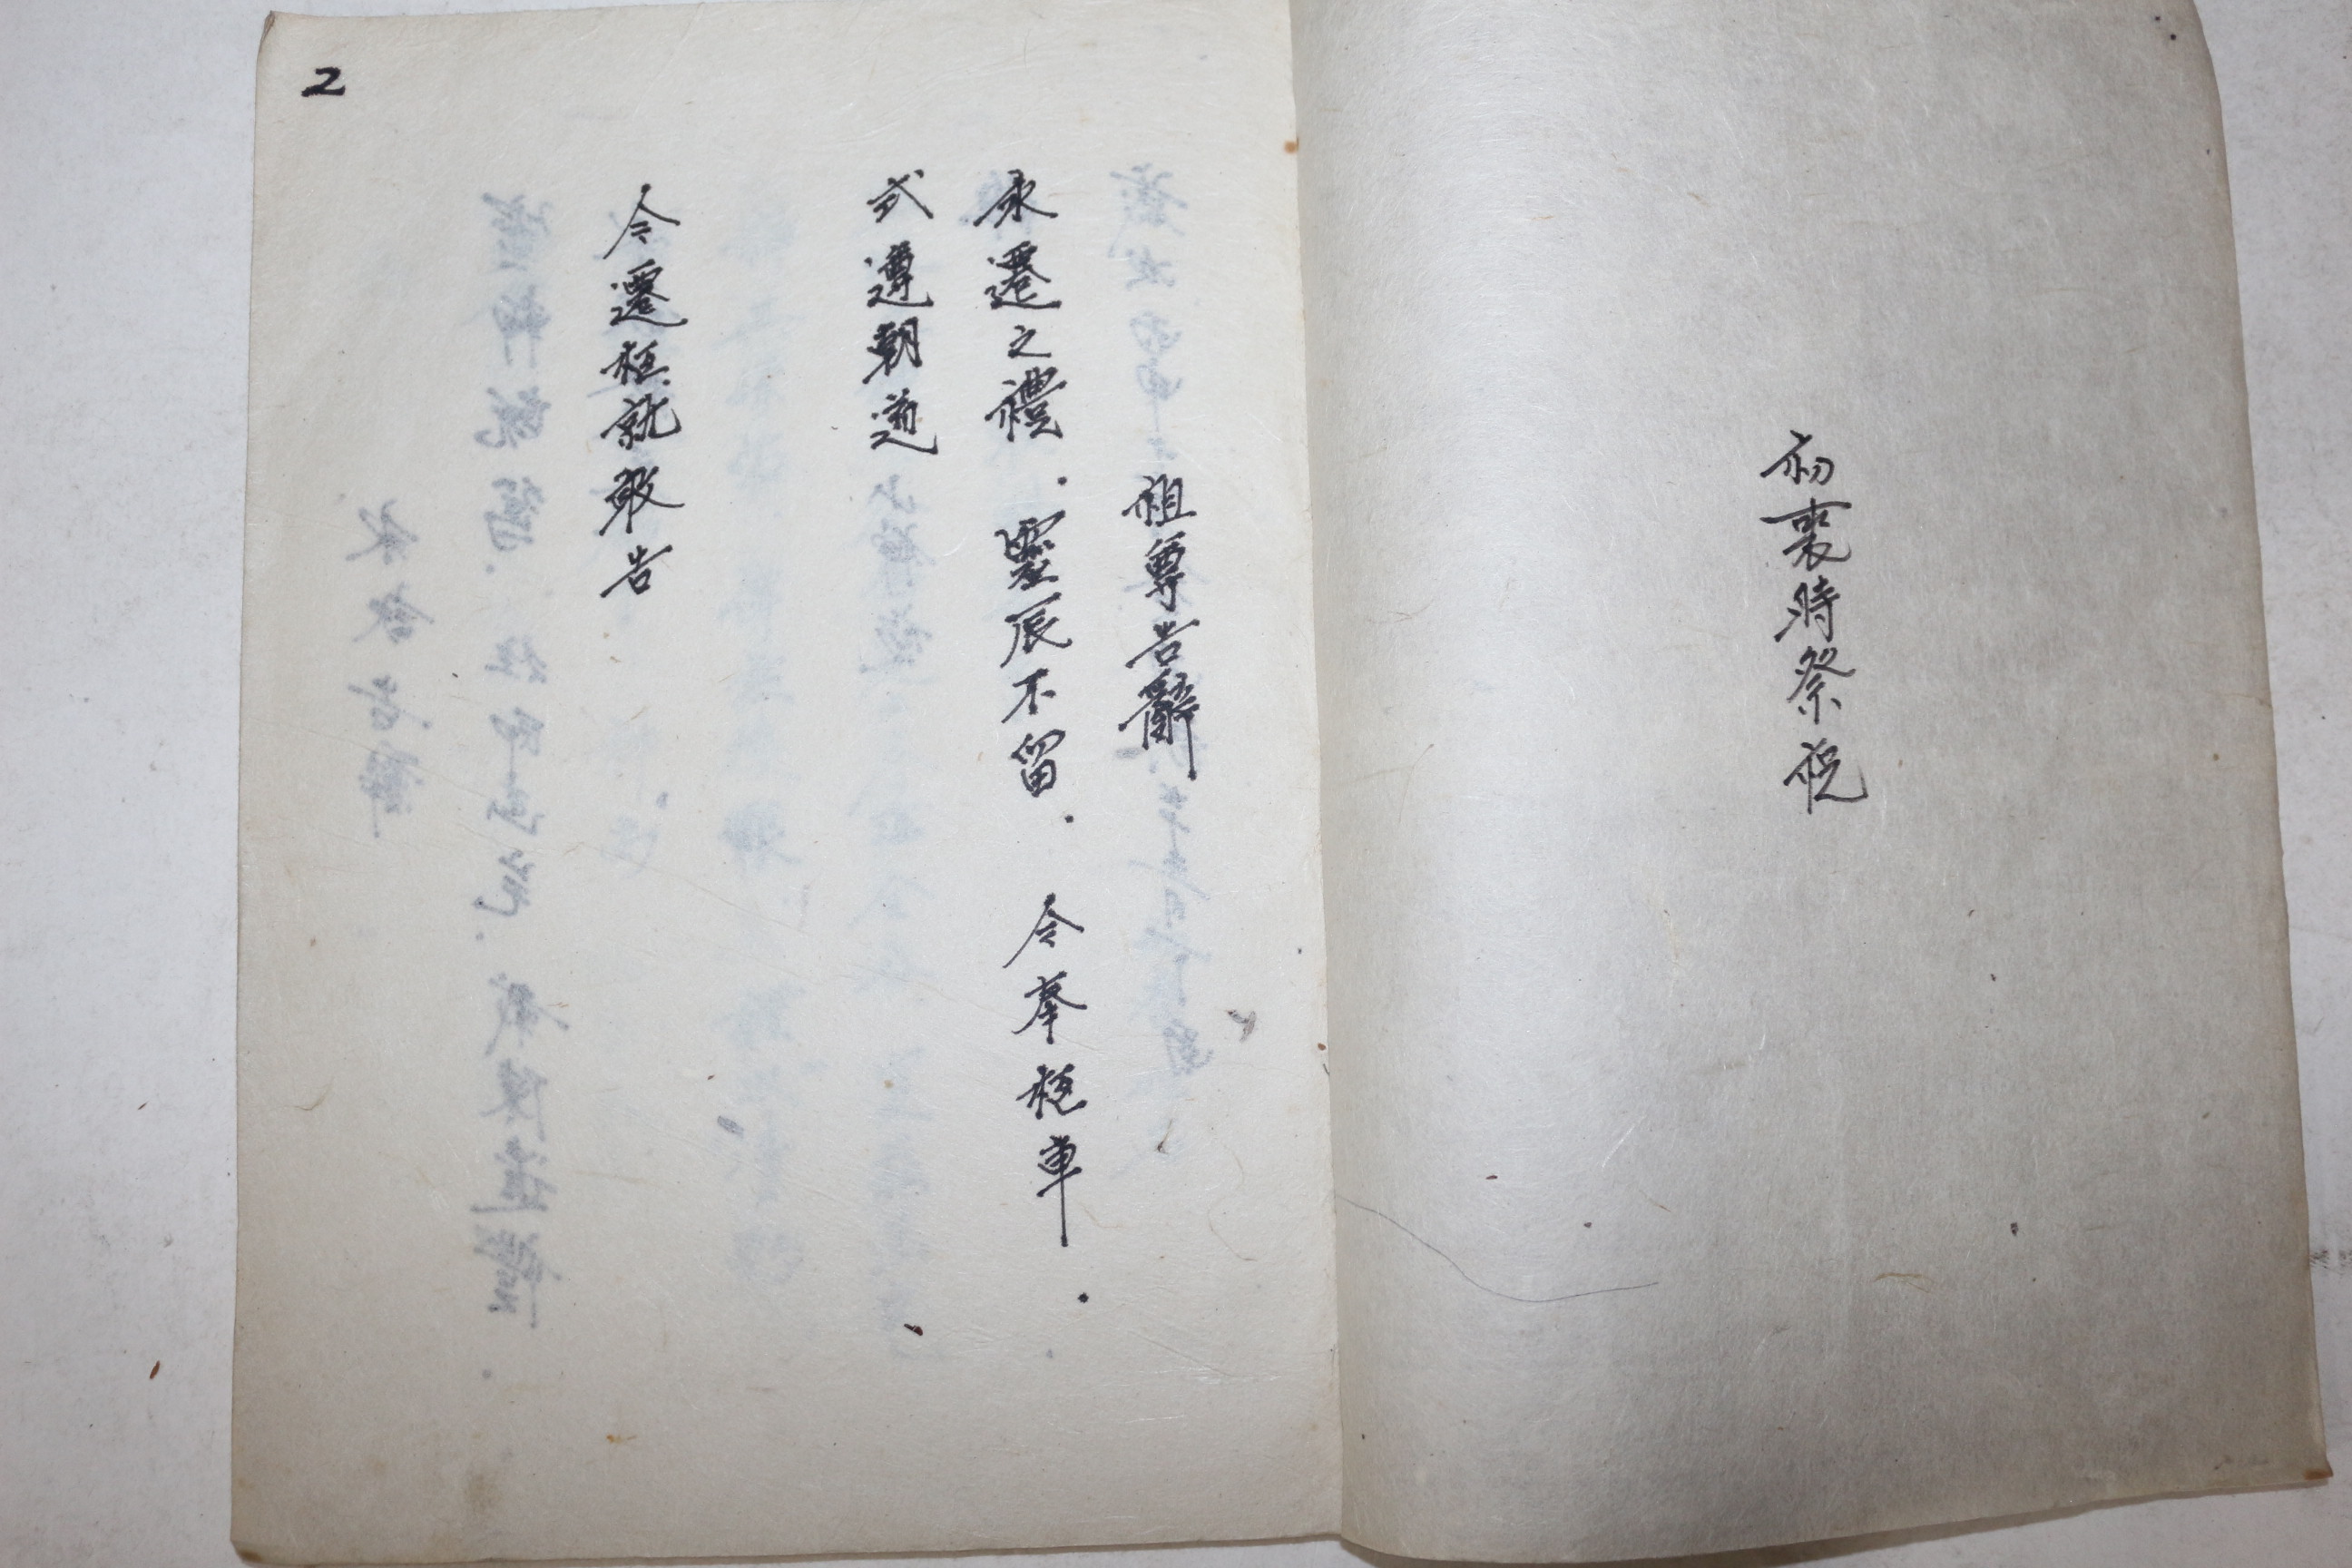 初喪時祭祝
2
祖尊告辭
永遷之禮. 靈辰不留. 今奉柩車.
式遵朝道
今遷柩就敢告